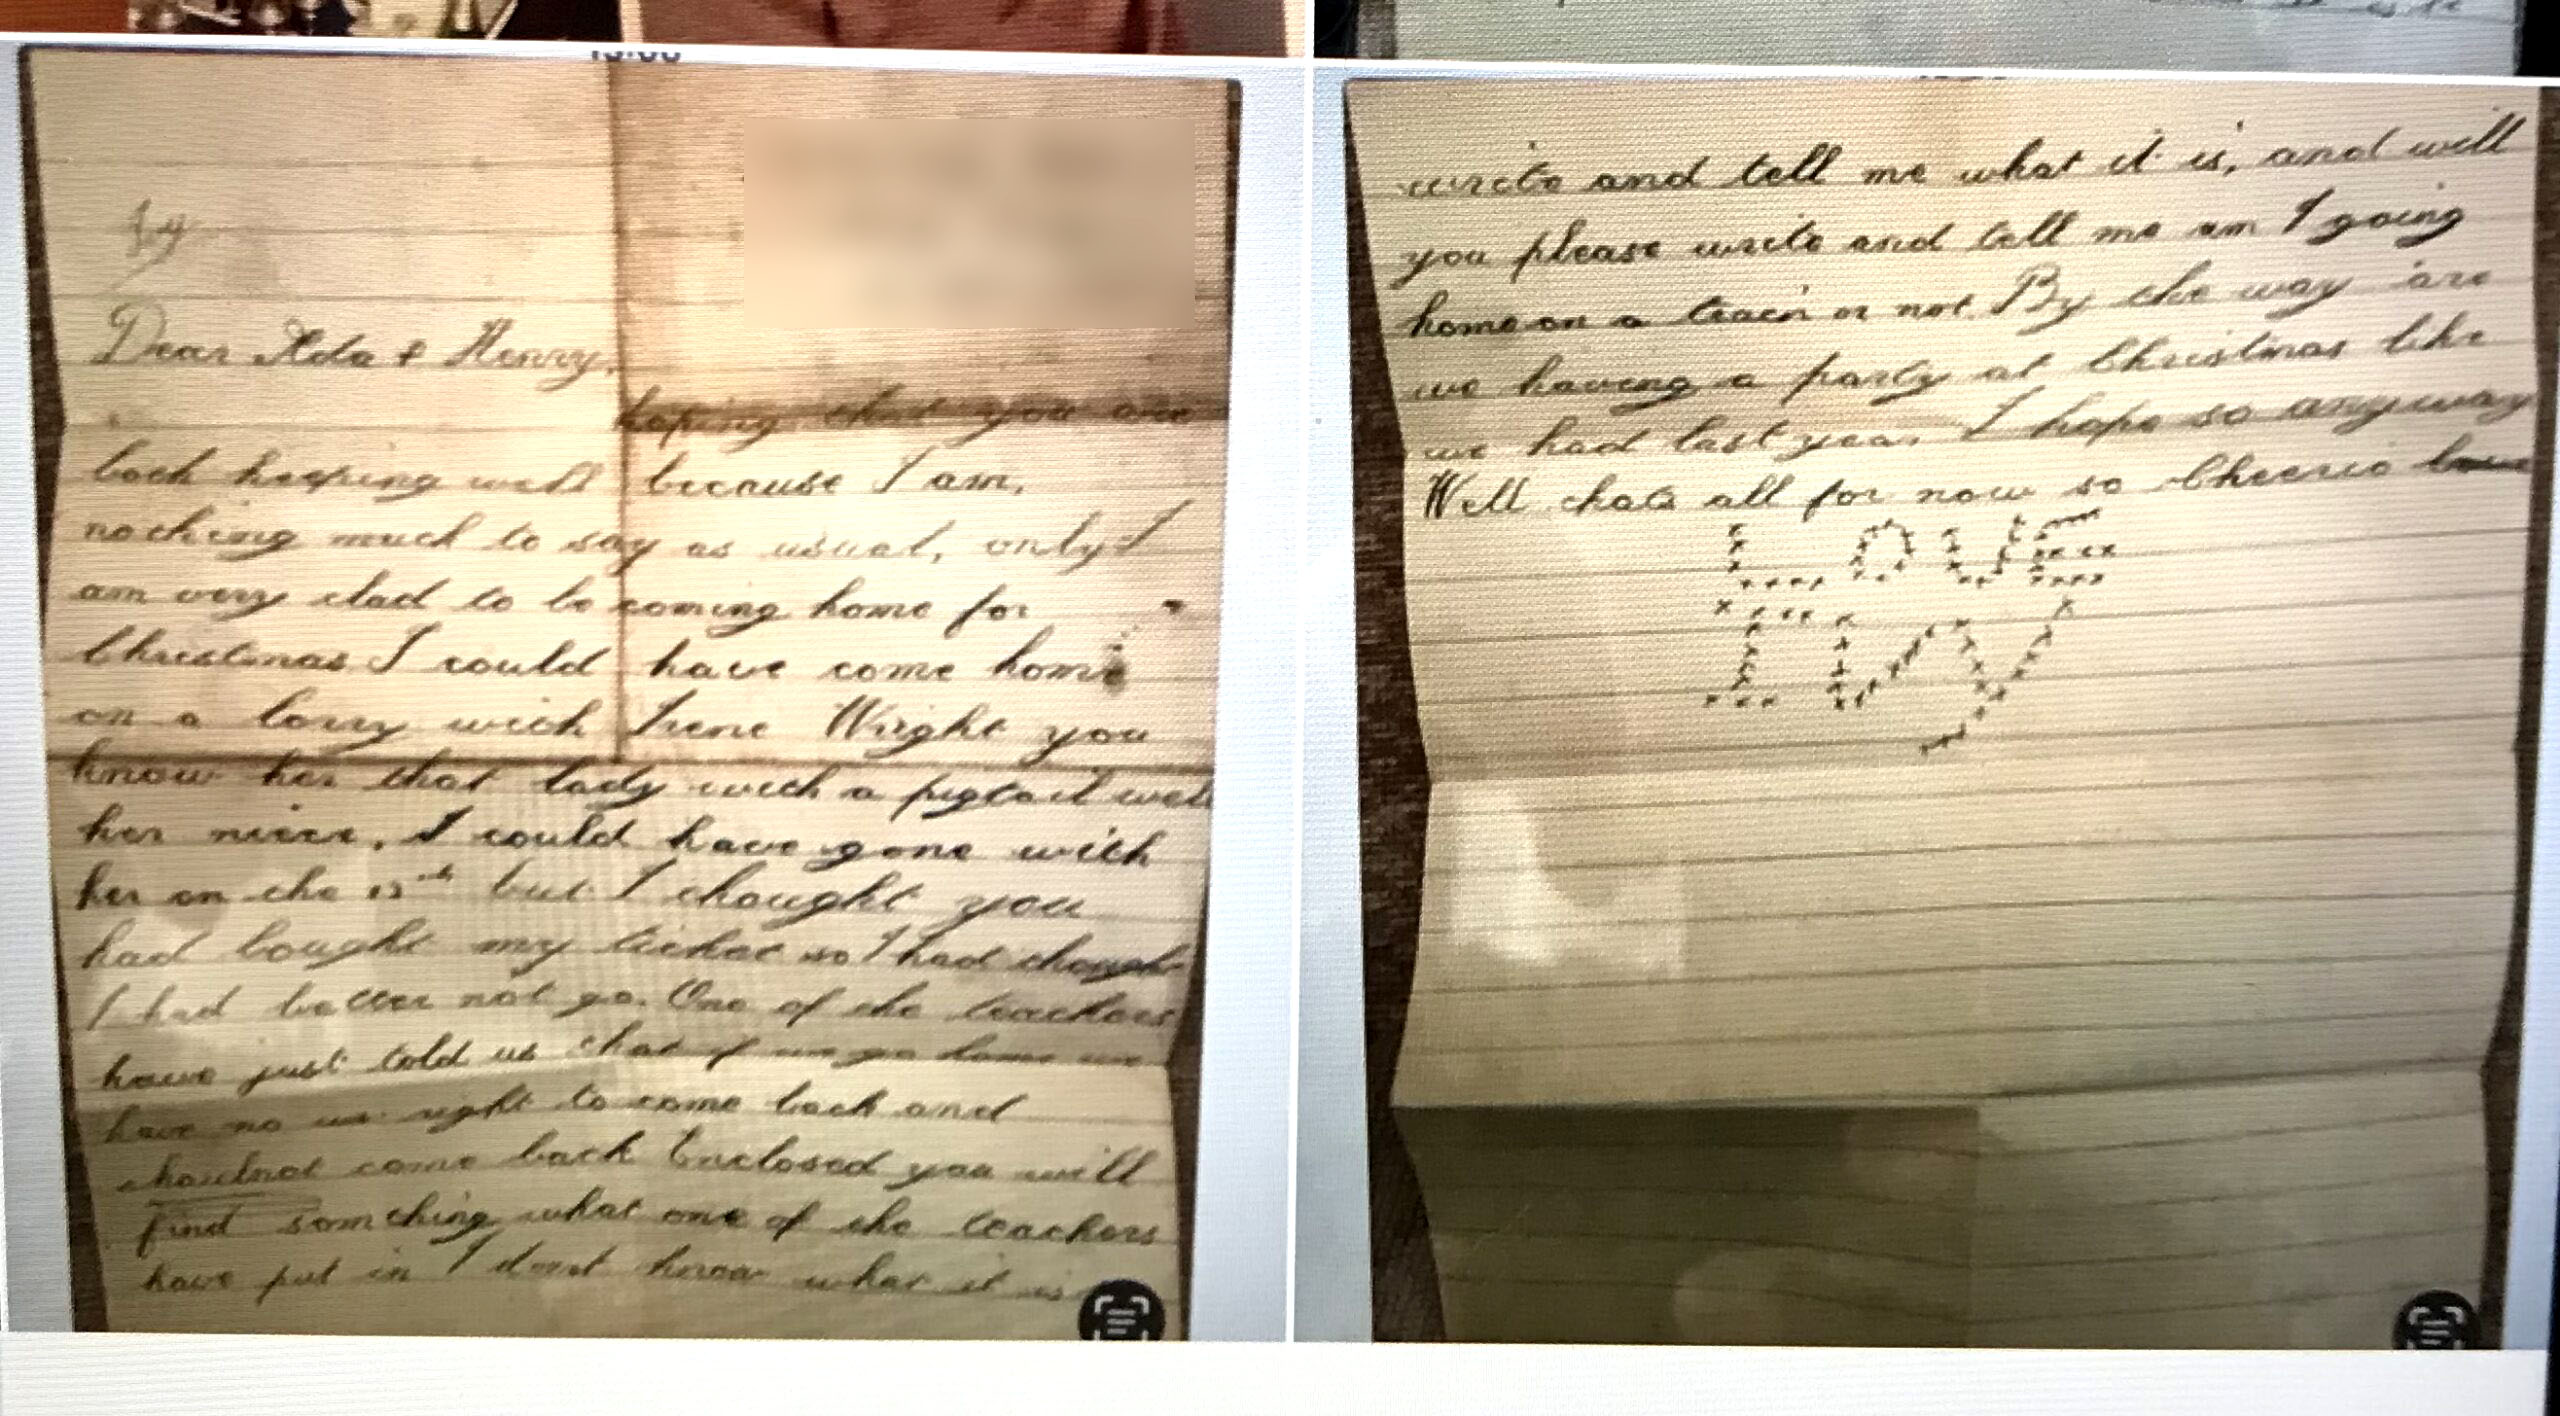 Ivy
Dear Ada & Henry,
hoping that you are
both keeping well because I am,
nothing much to say as usual, only I
am very glad to be coming home for
Christmas I could have come home
on a lorry with Irene Wright you
know her that lady with a pigtail well
her niece, I could have gone with
her on the 15th but I thought you
had bought my ticket so I had though
I had better not go. One of the teachers
have just told us that if we go home we
have no right to come back and
come back Enclosed you will
find somthing what one of the teachers
have put in I dont know what it is
write and tell me what it is, and will
you please write and tell me am I going
home on a train or not By the way are
we having a party at Christmas like
we had last year I hope so anyway
Well thats all for now so Cheerio
LOVE
IVY